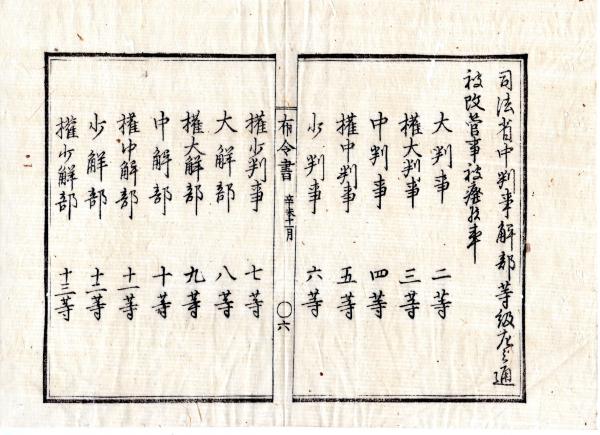 司法省中判事解部等級左之通
被改管事被廃候事
大判事 二等
権大判事 三等
中判事 四等
権中判事 五等
少判事 六等
布令書 辛未十一月 〇六
権少判事 七等
大解部 八等
権大解部 九等
中解部 十等
権中解部 十一等
少解部 十二等
権少解部 十三等